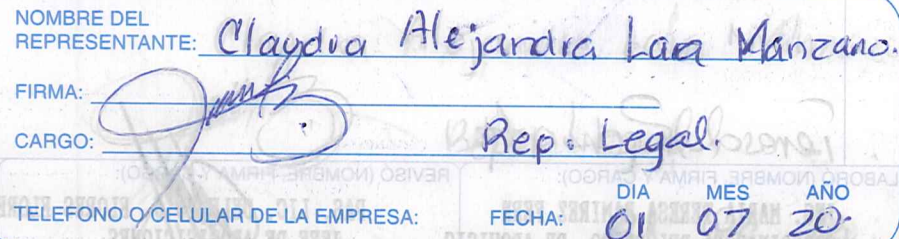 NOMBRE DEL
REPRESENTANTE: Claudia Alejandra Lara Manzano.
FIRMA:
CARGO: Rep. Legal.
DIA MES AÑO
TELEFONO O CELULAR DE LA EMPRESA: FECHA: 01 07 20